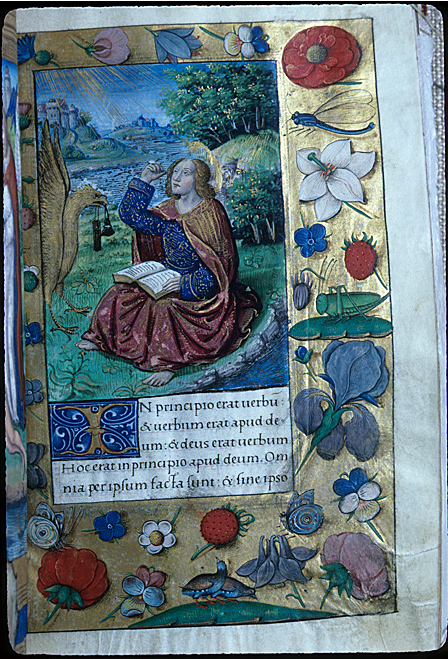 IN principio erat uerbu:
& uerbum erat apud de
um: & deus erat uerbum
Hoc erat in principio apud deum. Om
nia per ipsum facta sunt: & sine ipso